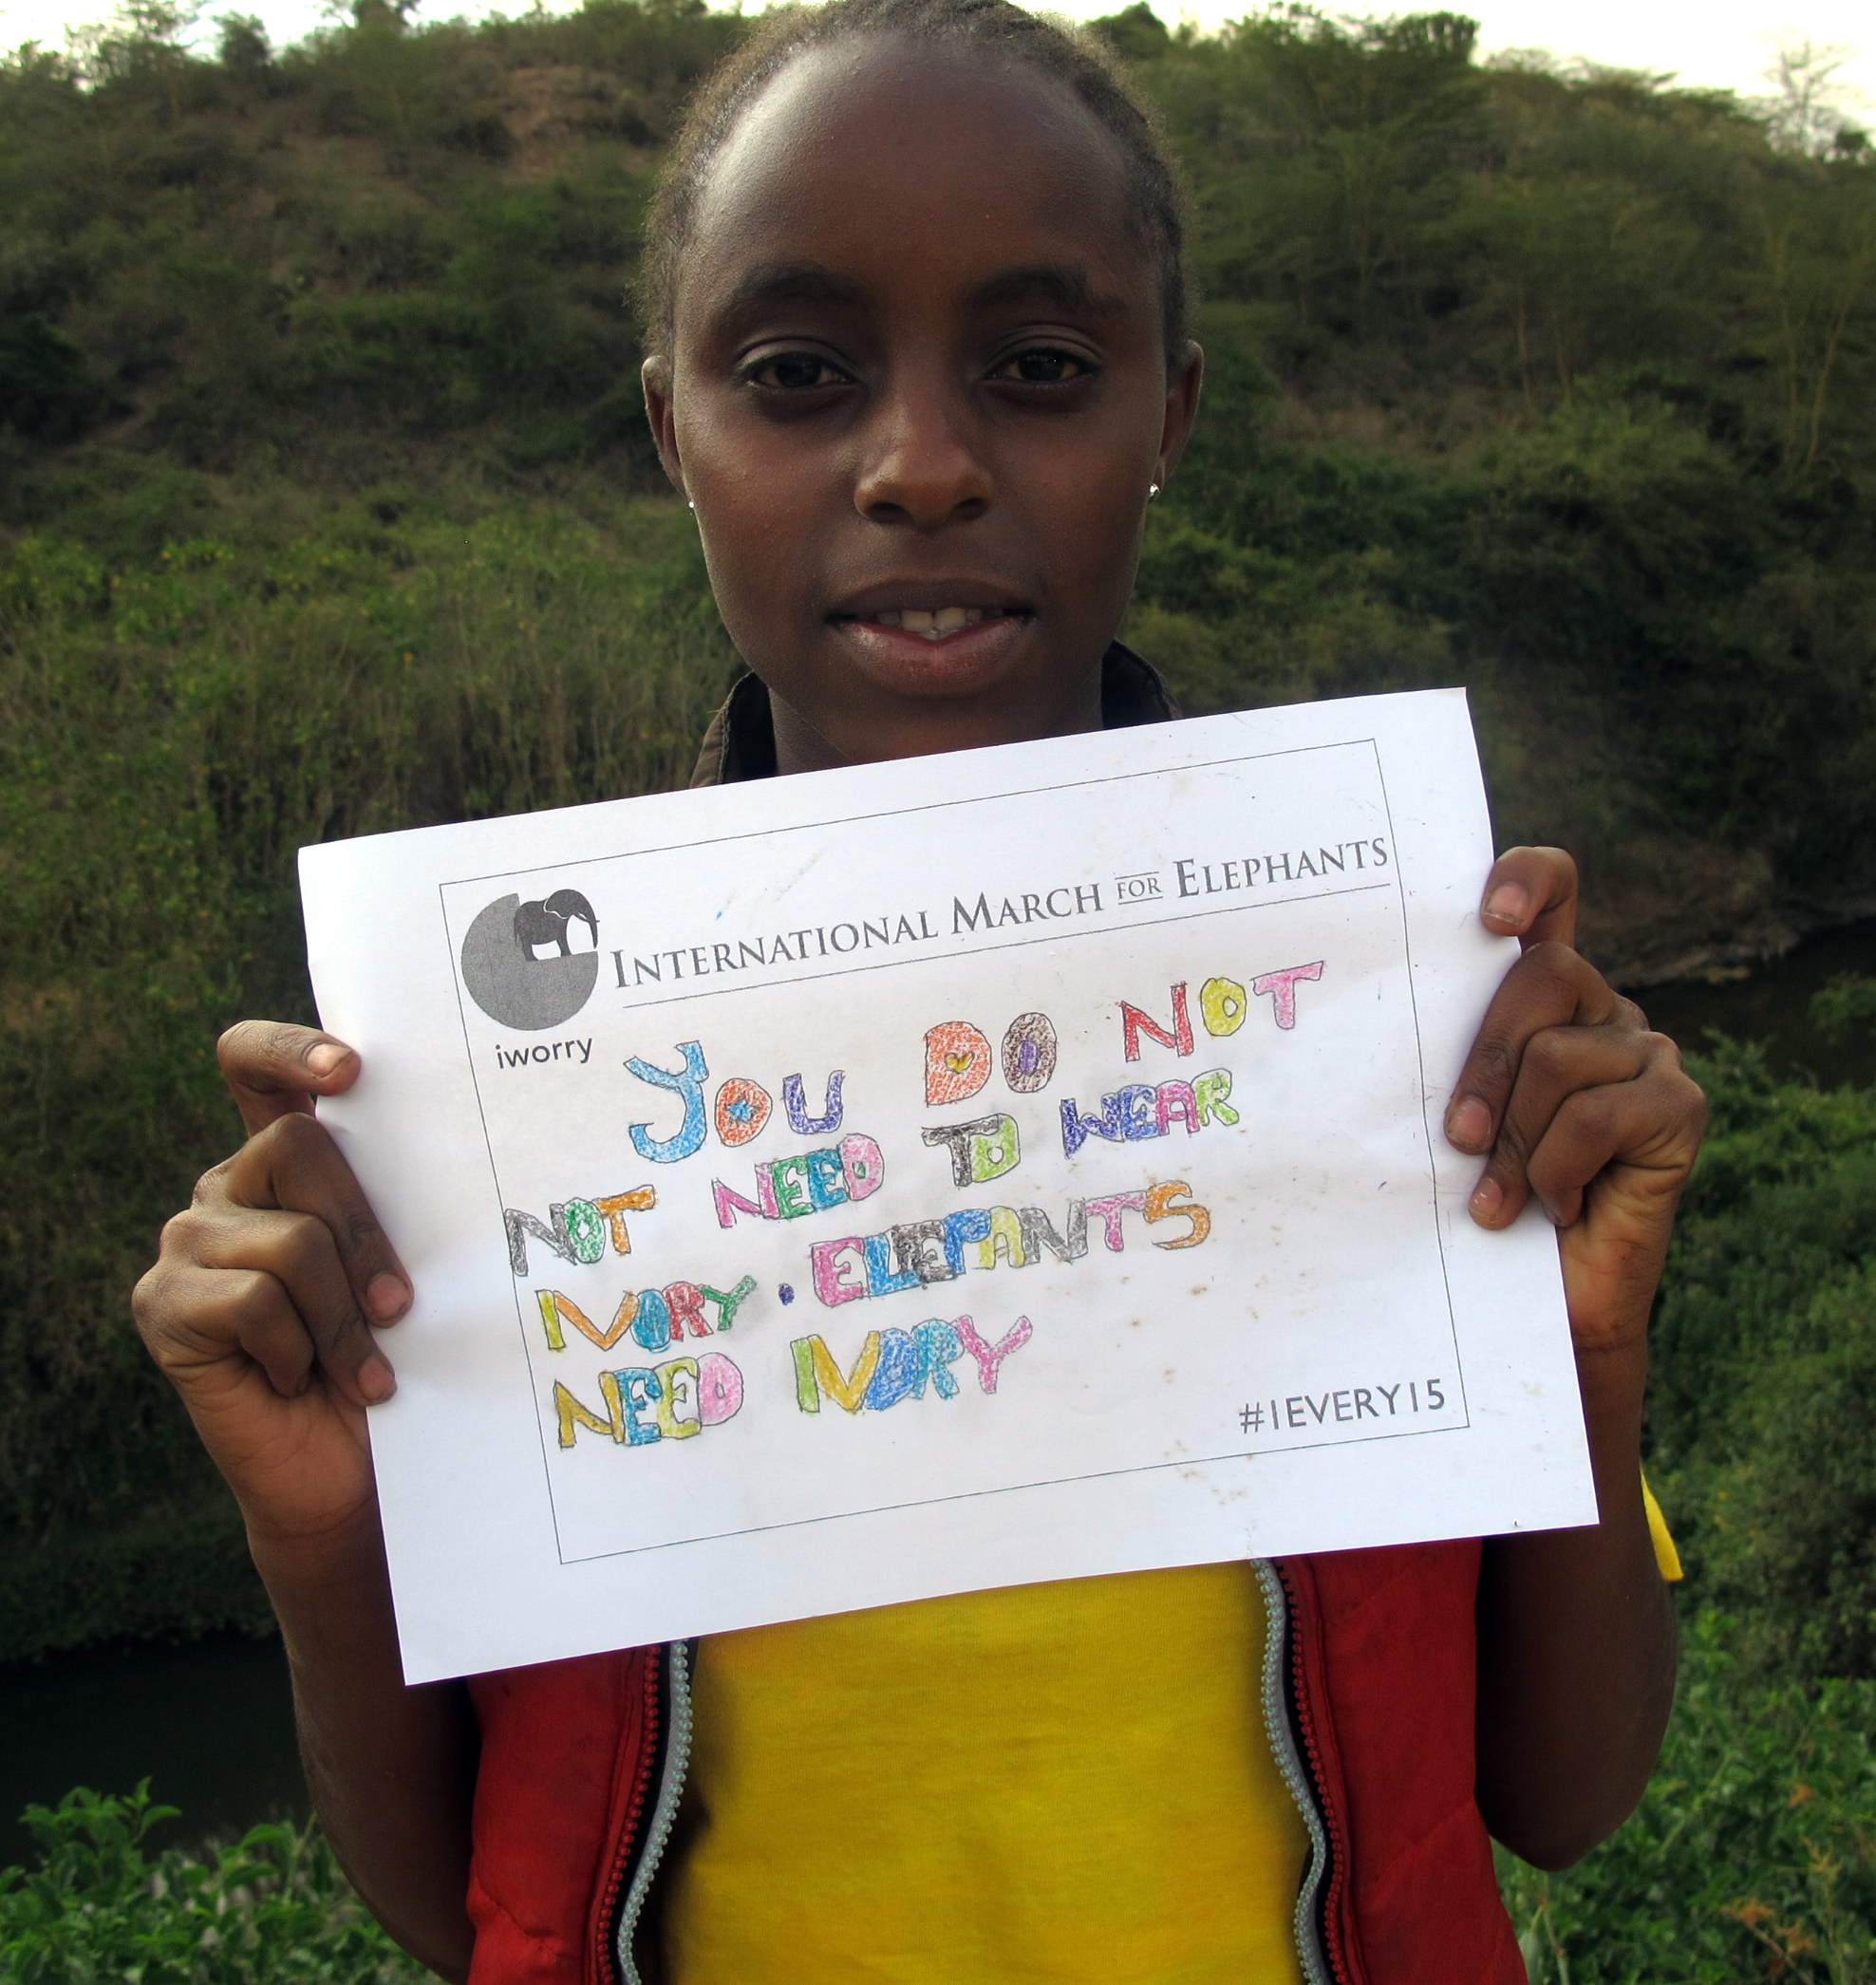 INTERNATIONAL MARCH FOR ELEPHANTS
iworry
YOU DO NOT
NOT NEED TO WEAR
IVORY . ELEPANTS
NEED IVORY
#1EVERY15